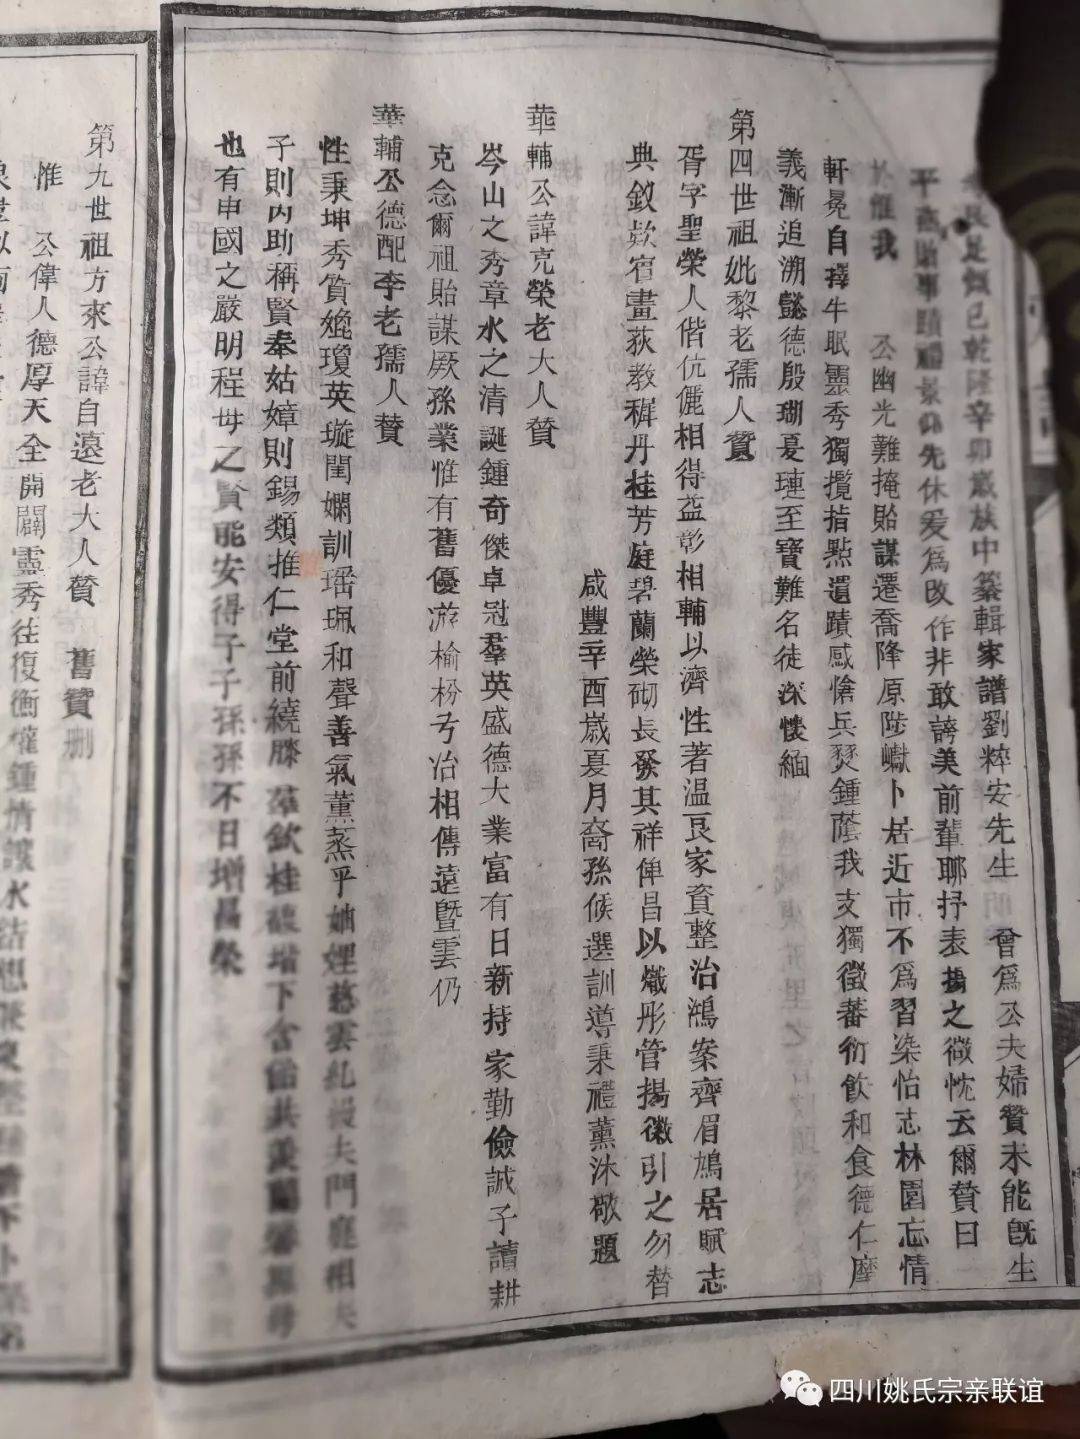 是饌已乾隆辛卯歲族中纂輯家譜劉粹安先生 曾為公夫婦贊未能旣生
平 景仰先休爰為改作非敢誇美前輩聊抒表揚之微忱云爾贊曰
於惟我 公幽光難掩貽謀遷喬降原陟巘卜居近市不為習染怡志林園忘情
軒冕自擇牛眠靈秀獨攬指點遺蹟感愴兵燹鍾蔭我支獨徵蕃衍飲和食德仁摩
義漸追溯懿德殷瑚夏璉至寶難名徒深懷緬
第四世祖妣黎老孺人贊
胥字聖榮人偕伉儷相得益彰相輔以濟性著温良家資整治鴻案齊眉鳩居賦志
典釵欵宿畫荻教穉丹桂芳庭碧蘭榮砌長發其祥俾昌以熾彤管揚徽引之勿替
咸豐辛酉歲夏月裔孫候選訓導秉禮薰沐敬題
華輔公諱克榮老大人贊
岑山之秀章水之清誕鍾奇傑卓冠羣英盛德大業富有日新持家勤儉誠子讀耕
克念爾祖貽謀厥孫業惟有舊優游榆枌兮冶相傳遠暨雲仍
華輔公德配李老孺人贊
性秉坤秀質媲瓊英璇閨嫻訓瑶珮和聲善氣薰蒸乎姻婭慈雲糺縵夫門庭相夫
子則内助稱賢奉姑嫜則錫類推仁堂前繞膝羣欽桂馥堦下含飴共羡蘭
也有申國之嚴明程母之賢能安得子子孫孫不日增昌榮
第九世祖方來公諱自遠老大人贊 舊贊刪
惟 公偉人德厚天全開闢靈秀往復衡權鍾情讓水結想
四川姚氏宗亲联谊